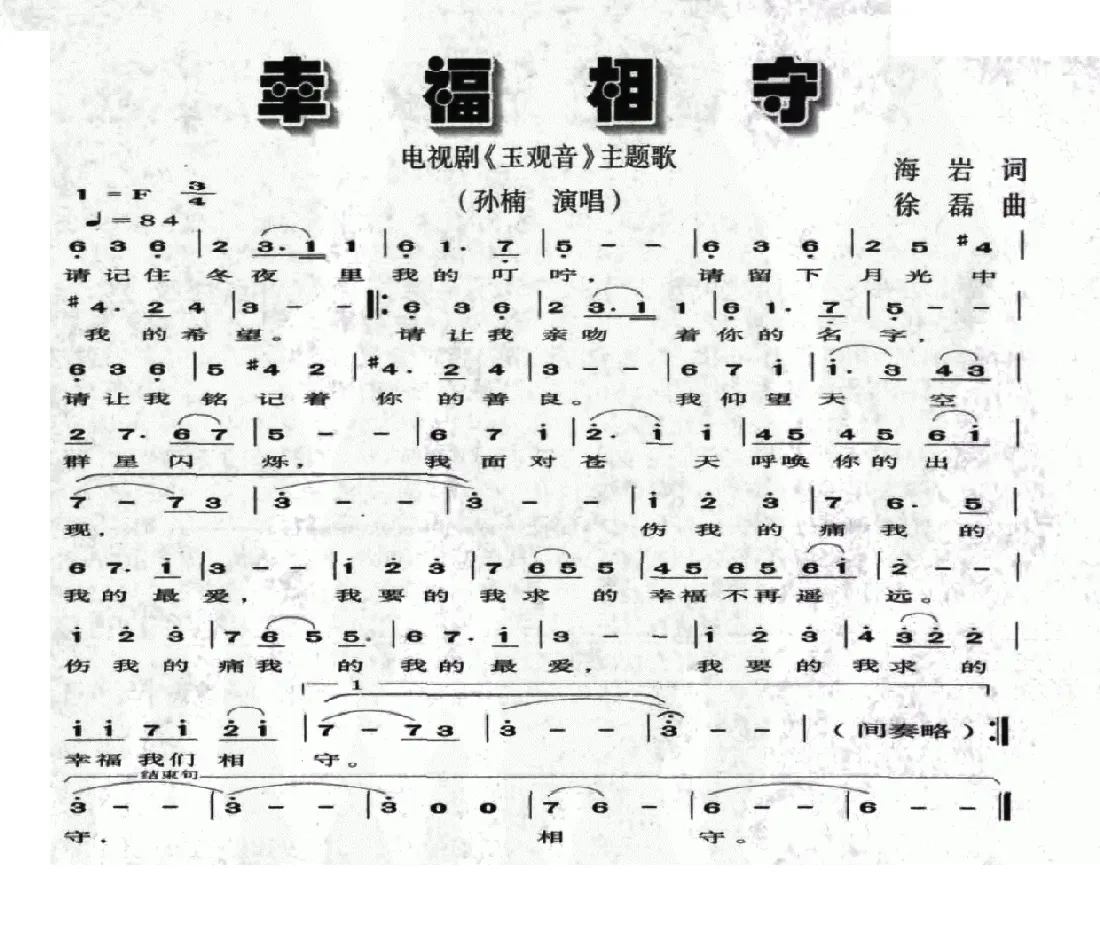 幸福相守
电视剧《玉观音》主题歌
海岩 词
1=F 3/4
(孙楠 演唱)
徐磊 曲
♩=84
6 3 6 | 2 3. 1 1 | 6 1. 7 | 5 - - | 6 3 6 | 2 5 #4 |
请记住 冬夜 里我的叮咛, 请留下 月光中
#4. 2 4 | 3 - - |: 6 3 6 | 2 3. 1 1 | 6 1. 7 | 5 - - |
我的希望。 请让我 亲吻 着你的名字,
6 3 6 | 5 #4 2 | #4. 2 4 | 3 - - | 6 7 i | i. 3 4 3 |
请让我 铭记着 你的善良。 我仰望天 空
2 7. 6 7 | 5 - - | 6 7 i | 2. i i | 4 5 4 5 6 i |
群星闪 烁, 我面对苍 天呼唤你的出
7 - 7 3 | 3 - - | 3 - - | i 2 3 | 7 6. 5 |
现, 伤我的痛我的
6 7. i | 3 - - | i 2 3 | 7 6 5 5 | 4 5 6 5 6 i | 2 - - |
我的最爱, 我要的我求的幸福不再遥远。
i 2 3 | 7 6 5 5. | 6 7. i | 3 - - | i 2 3 | 4 3 2 2 |
伤我的痛我 的我的最爱, 我要的我求的
1
i i 7 i 2 i | 7 - 7 3 | 3 - - | 3 - - | (间奏略) :|
幸福我们相 守。
结束句
3 - - | 3 - - | 3 0 0 | 7 6 - | 6 - - | 6 - - |
守. 相 守。